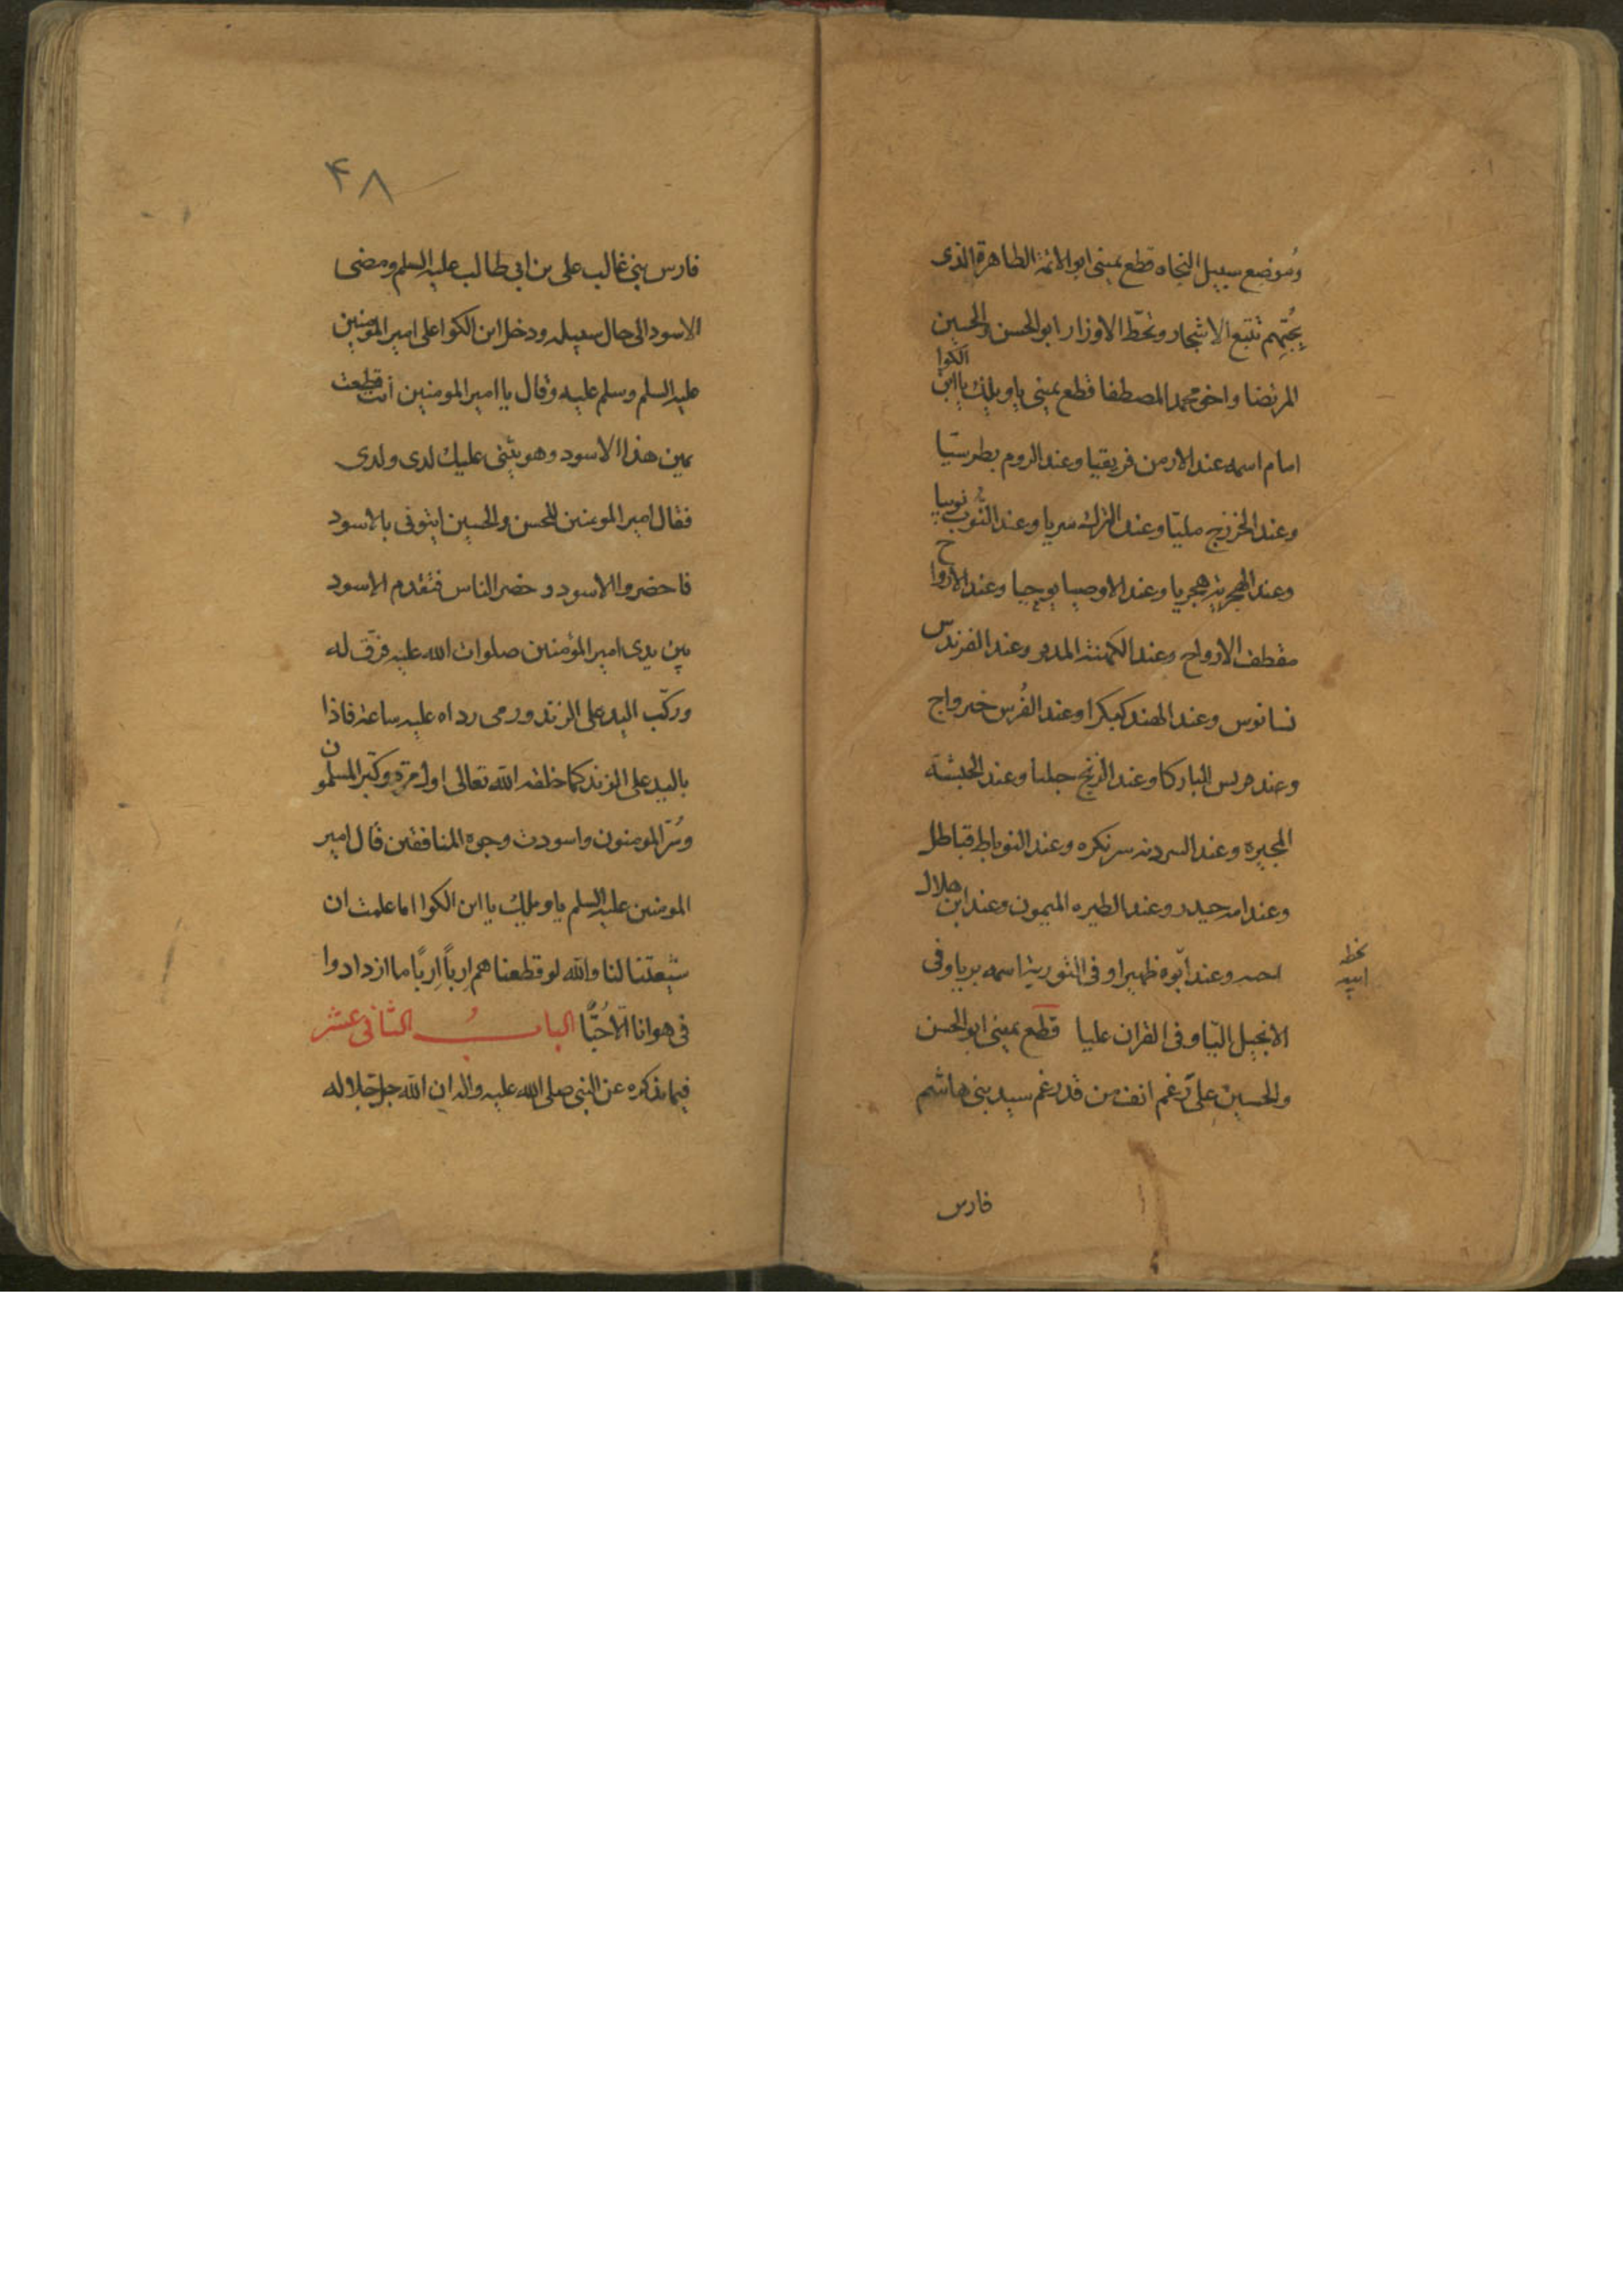 وُموضع سبيل النجاه قطع يمينى ابو الائمة الطاهرة الذى
بحُبّهم تتبع الاشجار وتحطّ الاوزار ابو الحسن والحسين
المرتضا واخو محمد المصطفا قطع يمينى ياويلك ياابن الكوا
امام اسمه عند الارمن فريقيا وعند الروم بطرستيا
وعند الخزرج مليتا وعند الترك سريا وعند النُوب نوبيا
وعند الهجريه هجريا وعند الاوصيا يوحيا وعند الارواح
مقطف الارواح وعند الكهنة المدبر وعند الفرندس
نسانوس وعند الهند كبكرا وعند الفُرس خيرواج
وعند مريس الباركا وعند الزنج جلنا وعند الحبشة
المجيره وعند السردنه سرنكره وعند النوباط قباطل
وعند امه حيدر وعند الطيره الميمون وعند ابن جلال
احمد وعند ابوه ظهيرا وفى التورية اسمه بريا وفى
بخط
ابيه
الانجيل اليّا وفى القران عليا قطع يمينى ابو الحسن
والحسين على رغم انف من قد رغم سيد بنى هاشم
فارس
۴۸
فارس بنى غالب على بن ابى طالب عليه السلم ومضى
الاسود الى حال سبيله ودخل ابن الكوا على امير المومنين
عليه السلم وسلم عليه وقال يا امير المومنين أنت قطعت
يمين هذا الاسود وهو يثنى عليك لدى ولدى
فقال امير المومنين للحسن والحسين ايتونى بالاسود
فاحضروا الاسود وحضر الناس فتقدم الاسود
بين يدى امير المؤمنين صلوات الله عليه فرّق له
وركّب اليد على الزند ورمى رداه عليه ساعة فاذا
باليد على الزند كما خلقه الله تعالى اول مرة وكبّر المسلمون
وسُرّ المومنون واسودت وجوه المنافقين قال امير
المومنين عليه السلم ياويلك يا ابن الكوا اما علمت ان
شيعتنا لنا والله لو قطعناهم ارباً اربًا ما ازدادوا
فى هوانا الّا حُبًّا البابُ الثانى عشر
فيما نذكره عن النبى صلى الله عليه واله ان الله جل جلاله